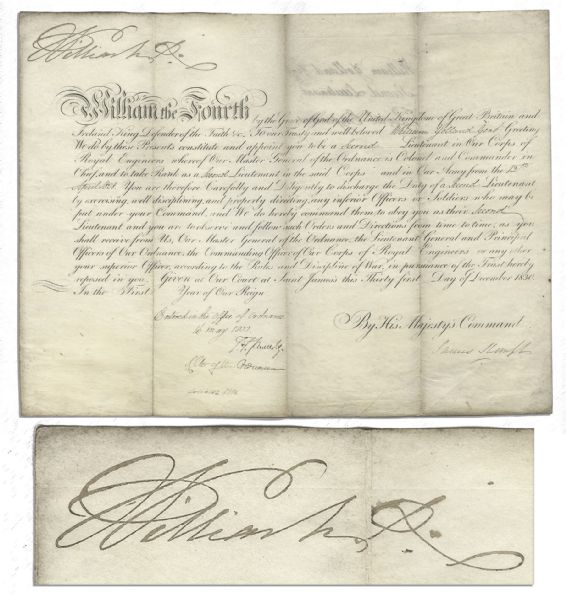 William R.
William the Fourth
by the Grace of God of the United Kingdom of Great Britain and
Ireland King, Defender of the Faith &c. To our Trusty and well beloved William Yolland Gent Greeting
We do by these Presents constitute and appoint you to be a Second Lieutenant in Our Corps of
Royal Engineers whereof Our Master General of the Ordnance is Colonel and Commander in
Chief, and to take Rank as a Second Lieutenant in the said Corps and in Our Army from the 12th
April You are therefore Carefully and Diligently to discharge the Duty of a Second Lieutenant
by exercising, well disciplining and properly directing any inferior Officers or Soldiers who may be
put under your Command, and We do hereby command them to obey you as their Second
Lieutenant and you are to observe and follow such Orders and Directions from time to time, as you
shall receive from Us, Our Master General of the Ordnance, the Lieutenant General and Principal
Officers of Our Ordnance, the Commanding Officer of Our Corps of Royal Engineers or any other
your superior Officer, according to the Rules and Discipline of War, in pursuance of the Trust hereby
reposed in you. Given at Our Court at Saint James's this Thirty first Day of December 1830
In the First Year of Our Reign
By His Majesty's Command
in the office of Ordnance
May
James Kempt
of the Ordnance
William R.